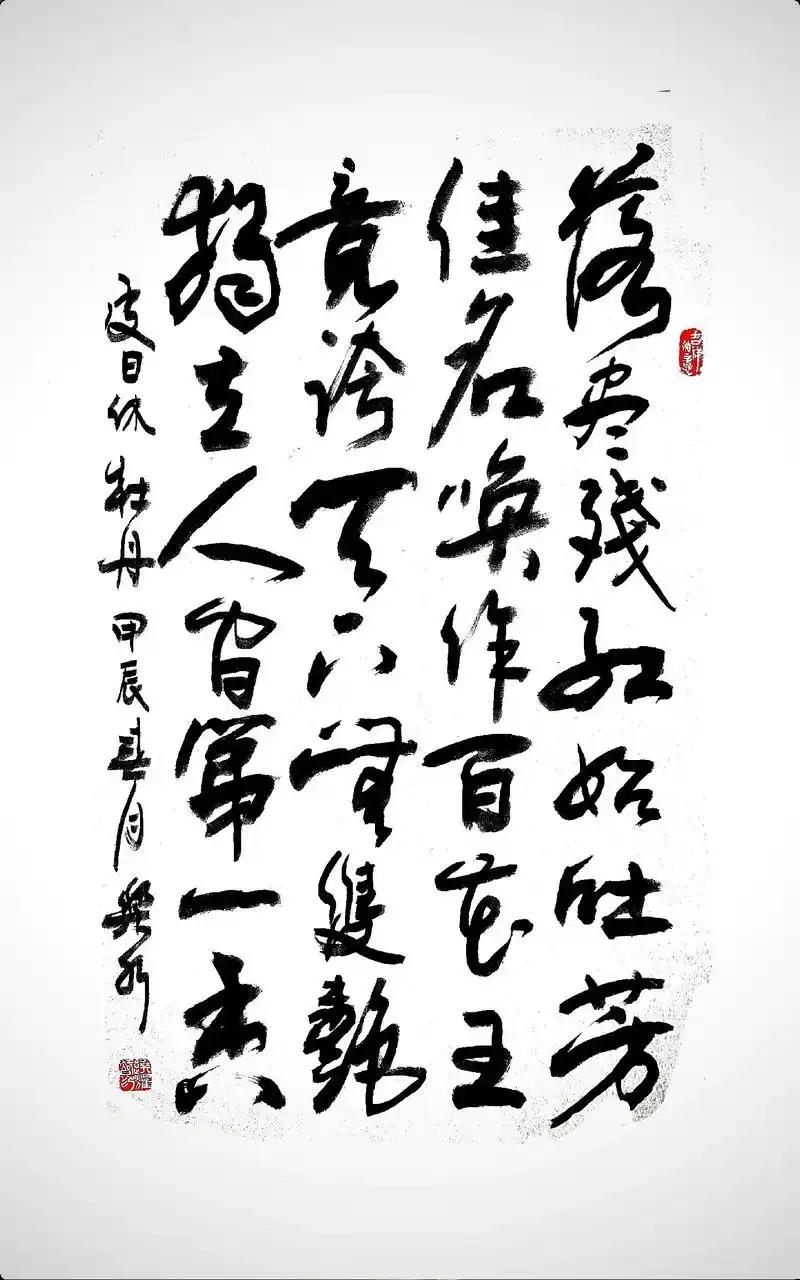 落尽残红始吐芳
佳名唤作百花王
竞夸天下无双艳
独立人间第一香
皮日休牡丹甲辰春月